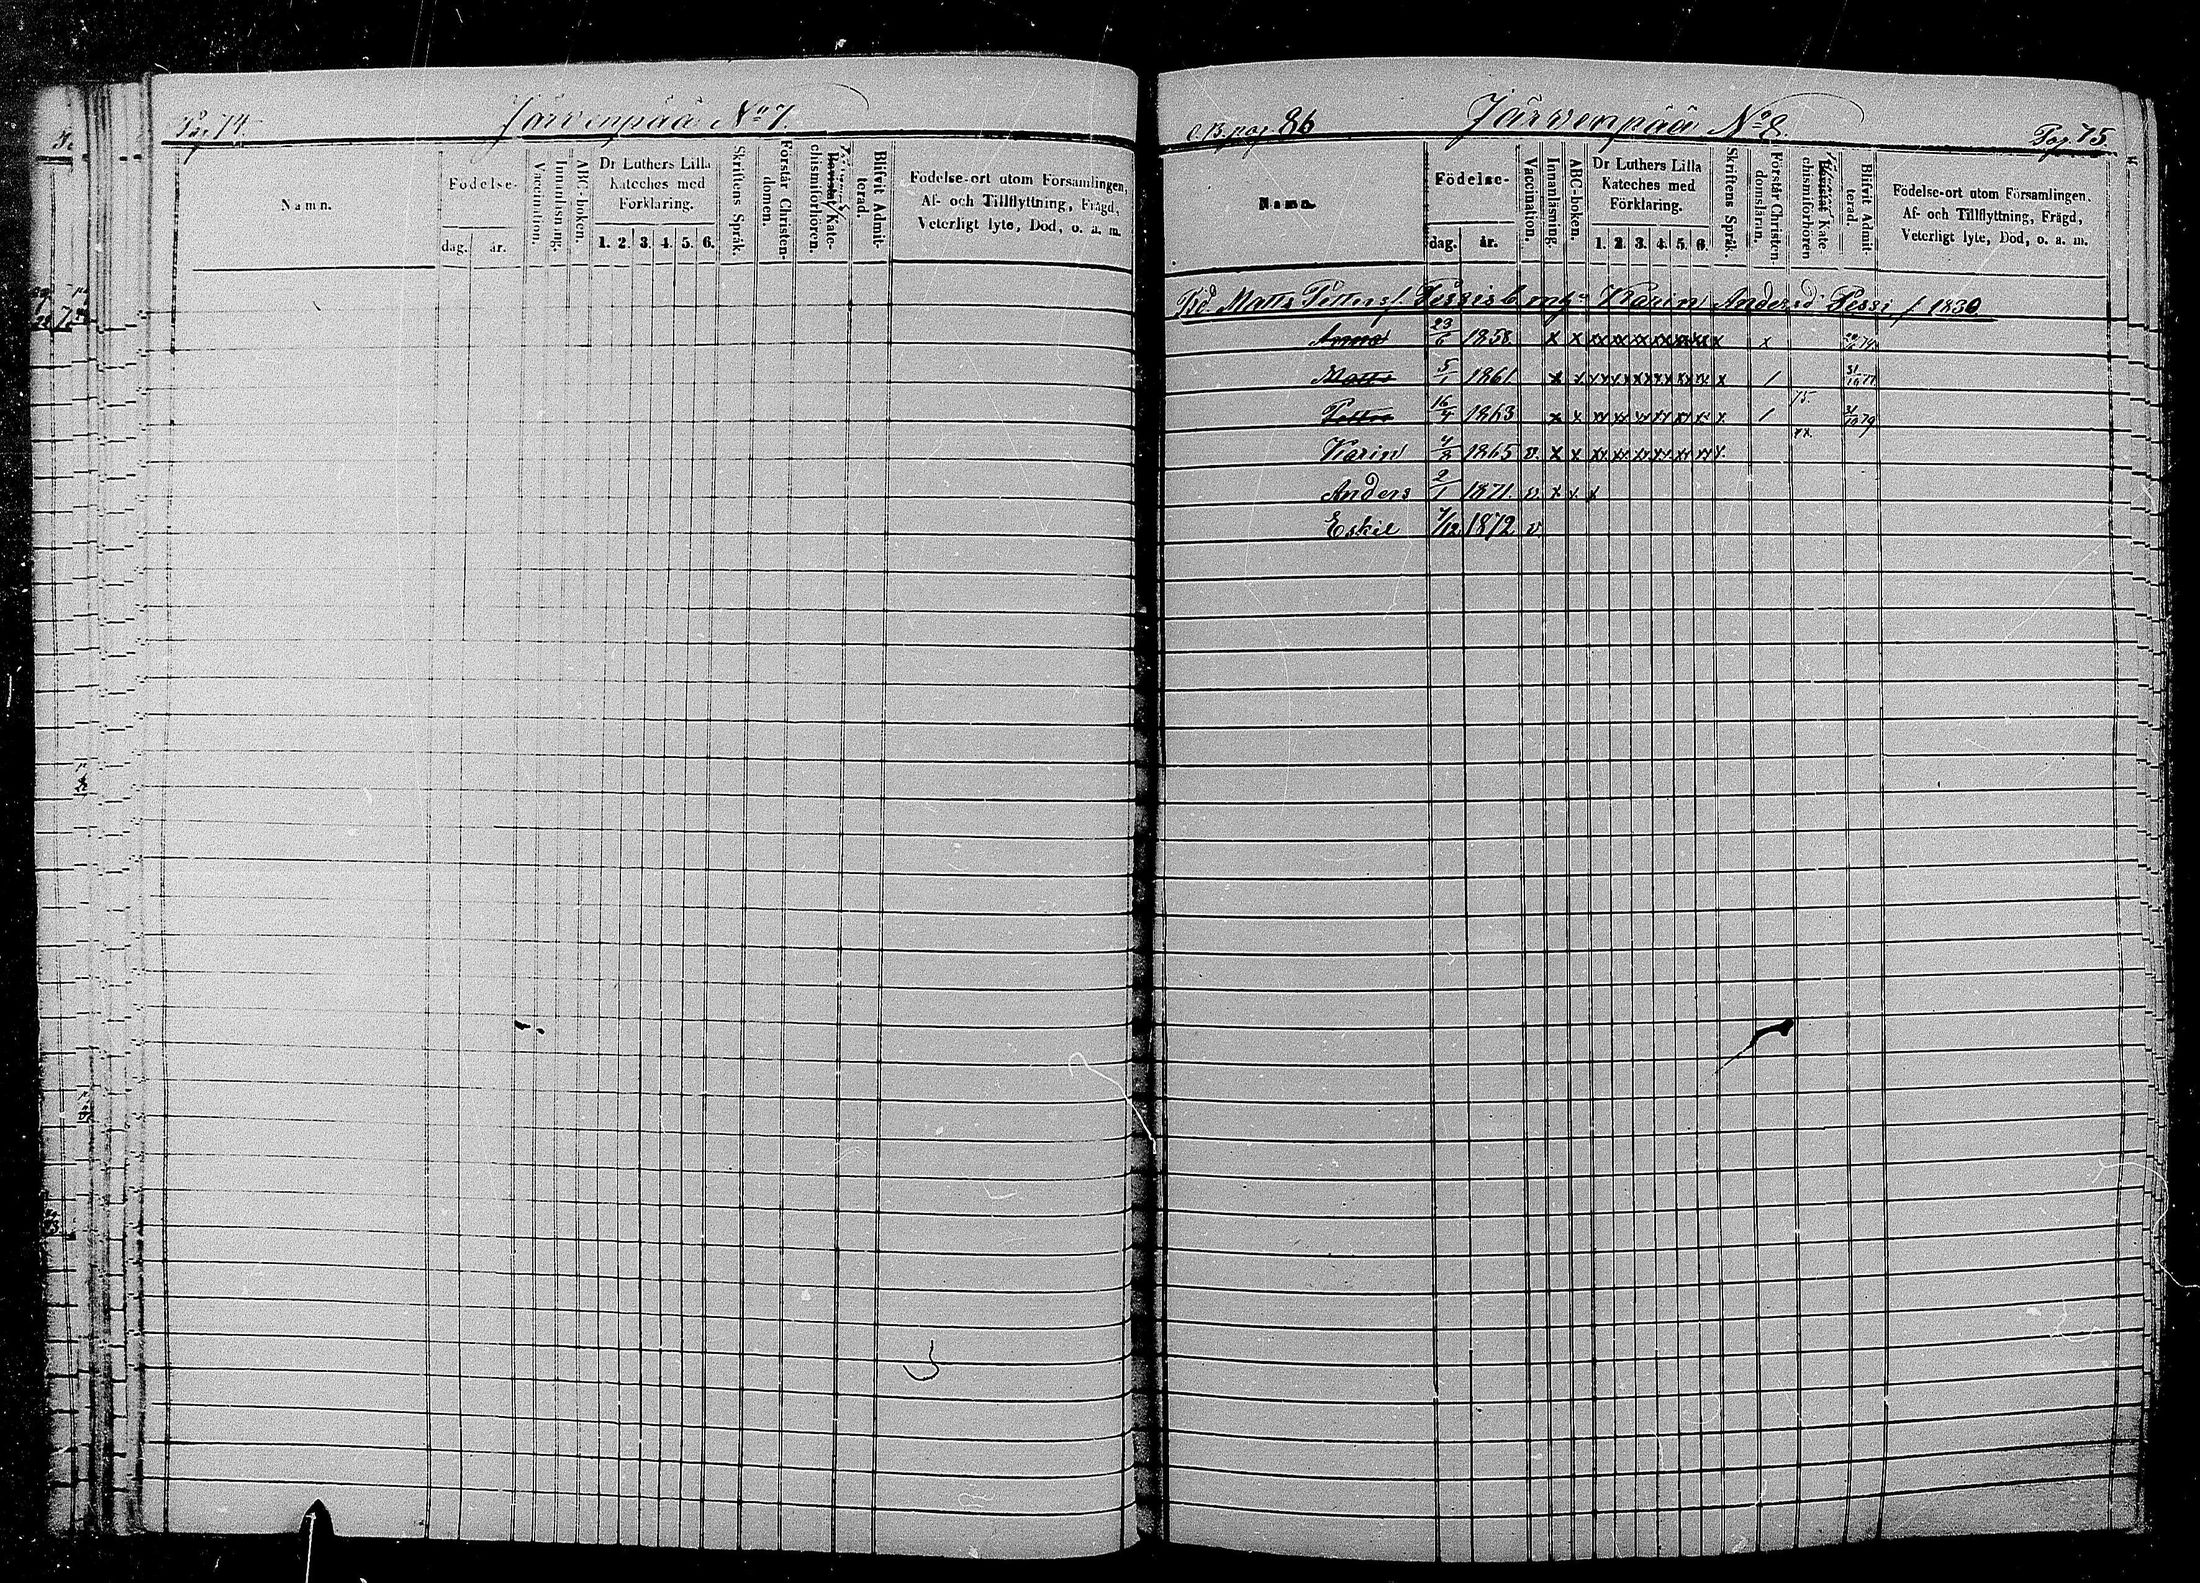 Pag. 74.
Järvenpää No 7.
Namn.
Födelse-
dag. år.
Vaccination.
Innanläsning.
ABC-boken.
Dr Luthers Lilla Kateches med Förklaring.
1. 2. 3. 4. 5. 6.
Skriftens Språk.
Förstår Christendomen.
Bevistat Katechismiförhören.
Blifvit Admitterad.
Födelse-ort utom Församlingen,
Af- och Tillflyttning, Frägd,
Veterligt lyte, Död, o. a. m.
C.B. pag. 86
Järvenpää No 8.
Pag. 75.
Namn.
Födelse-
dag. år.
Vaccination.
Innanläsning.
ABC-boken.
Dr Luthers Lilla Kateches med Förklaring.
1. 2. 3. 4. 5. 6.
Skriftens Språk.
Förstår Christendomsläran.
Bevistat Katechismiförhören
Blifvit Admitterad.
Födelse-ort utom Församlingen.
Af- och Tillflyttning, Frägd,
Veterligt lyte, Död, o. a. m.
Matts Petters. Karin Andersd. Pessi f. 1830
Anna 23/6 1858 x x xx xx xx xx xx xx x x
Matts 5/1 1861 x x xx xx xx xx xx xx x 1 31/10 77
Petter 16/4 1863 x x xx xx xx xx xx xx x 1 75. 31/10 79
Karin 4/3 1865 v. x x xx xx xx xx xx xx x. xx.
Anders 2/1 1871 v. x x x
Eskil 7/12 1872 v.